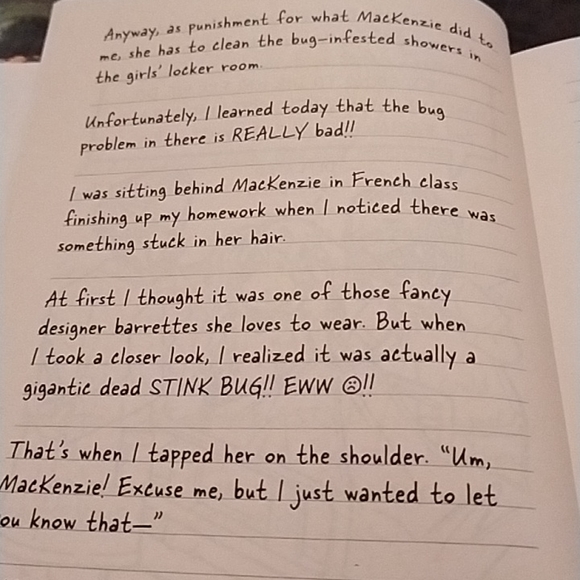 Anyway, as punishment for what MacKenzie did to
me, she has to clean the bug-infested showers in
the girls' locker room.
Unfortunately, I learned today that the bug
problem in there is REALLY bad!!
I was sitting behind MacKenzie in French class
finishing up my homework when I noticed there was
something stuck in her hair.
At first I thought it was one of those fancy
designer barrettes she loves to wear. But when
I took a closer look, I realized it was actually a
gigantic dead STINK BUG!! EWW ☹!!
That's when I tapped her on the shoulder. "Um,
MacKenzie! Excuse me, but I just wanted to let
ou know that—"